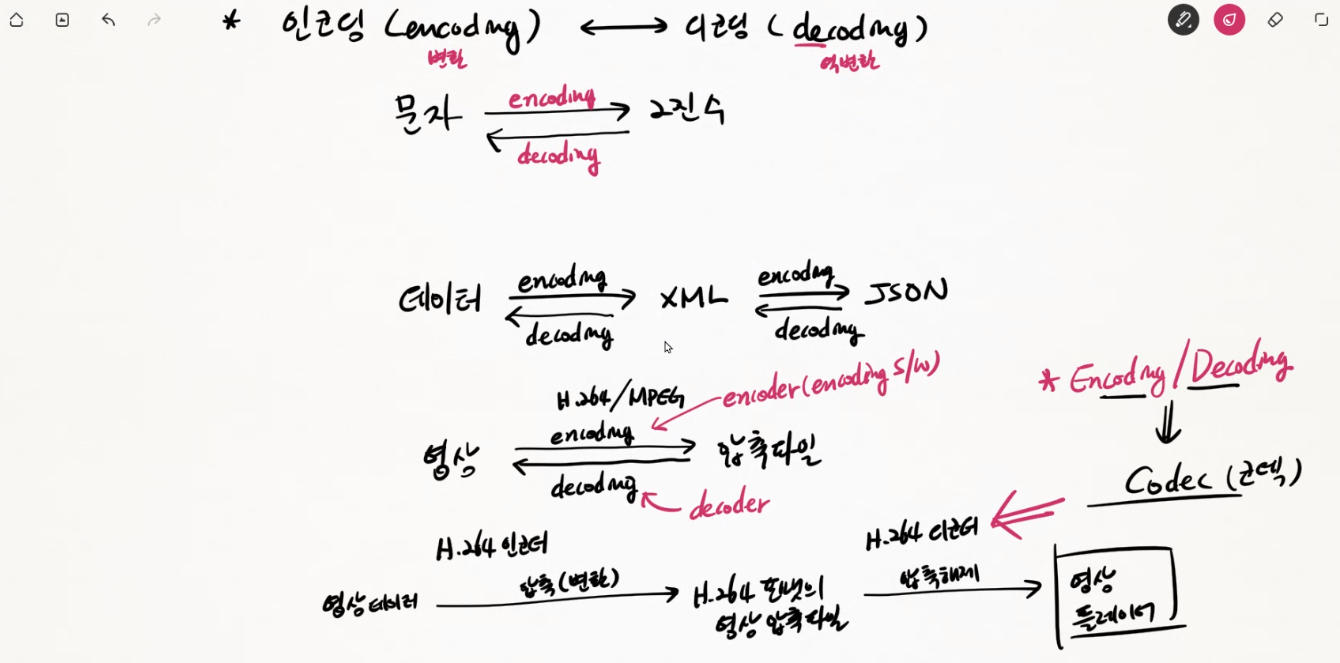 * 인코딩 (encoding) ↔ 디코딩 (decoding)
변환 역변환
문자 encoding 2진수
decoding
encoding encoding
데이터 XML JSON
decoding decoding
* Encoding/Decoding
H.264/MPEG encoder(encoding S/W)
encoding
영상 압축파일
decoding decoder
Codec (코덱)
H.264 인코더 H.264 디코더
압축(변환) 압축해제
영상데이터 H.264 포맷의 영상
영상 압축파일 플레이어